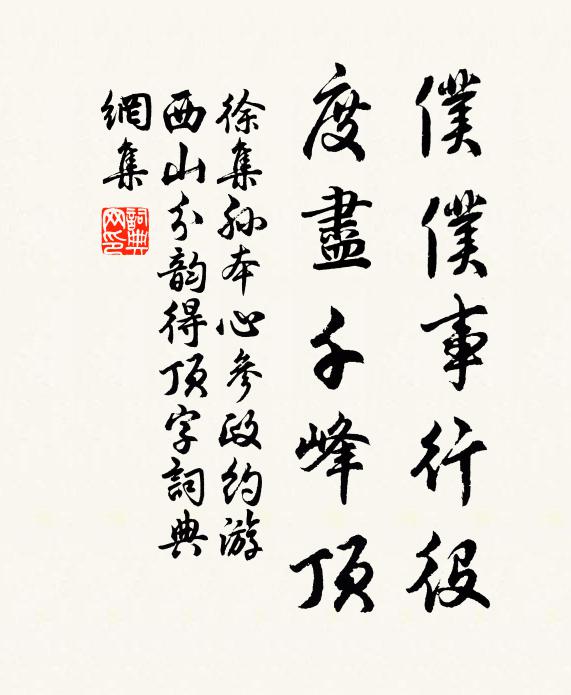 僕僕事行役
度盡千峰頂
徐集孫本心參政約游
西山分韵得頂字詞典
網集
詞典網印